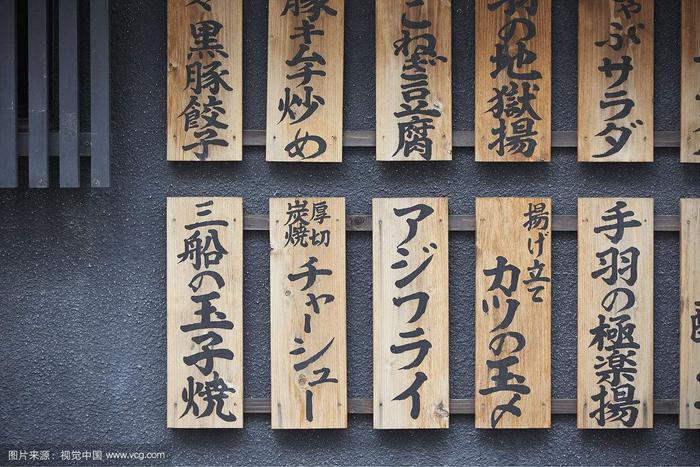 黒豚餃子
豚キムチ炒め
こねぎ豆腐
羽の地獄揚
ゃぶサラダ
三船の玉子焼
厚切
炭焼
チャーシュー
アジフライ
揚げ立て
カツの玉〆
手羽の極楽揚
图片来源：视觉中国 www.vcg.com